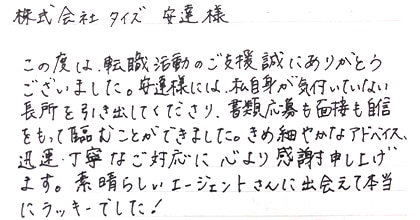 株式会社 タイズ 安達 様
この度は、転職活動のご支援誠にありがとう
ございました。安達様には、私自身が気付いていない
長所を引き出してくださり、書類応募も面接も自信
をもって臨むことができました。きめ細やかなアドバイス、
迅速・丁寧なご対応に心より感謝申し上げ
ます。素晴らしいエージェントさんに出会えて本当
にラッキーでした!